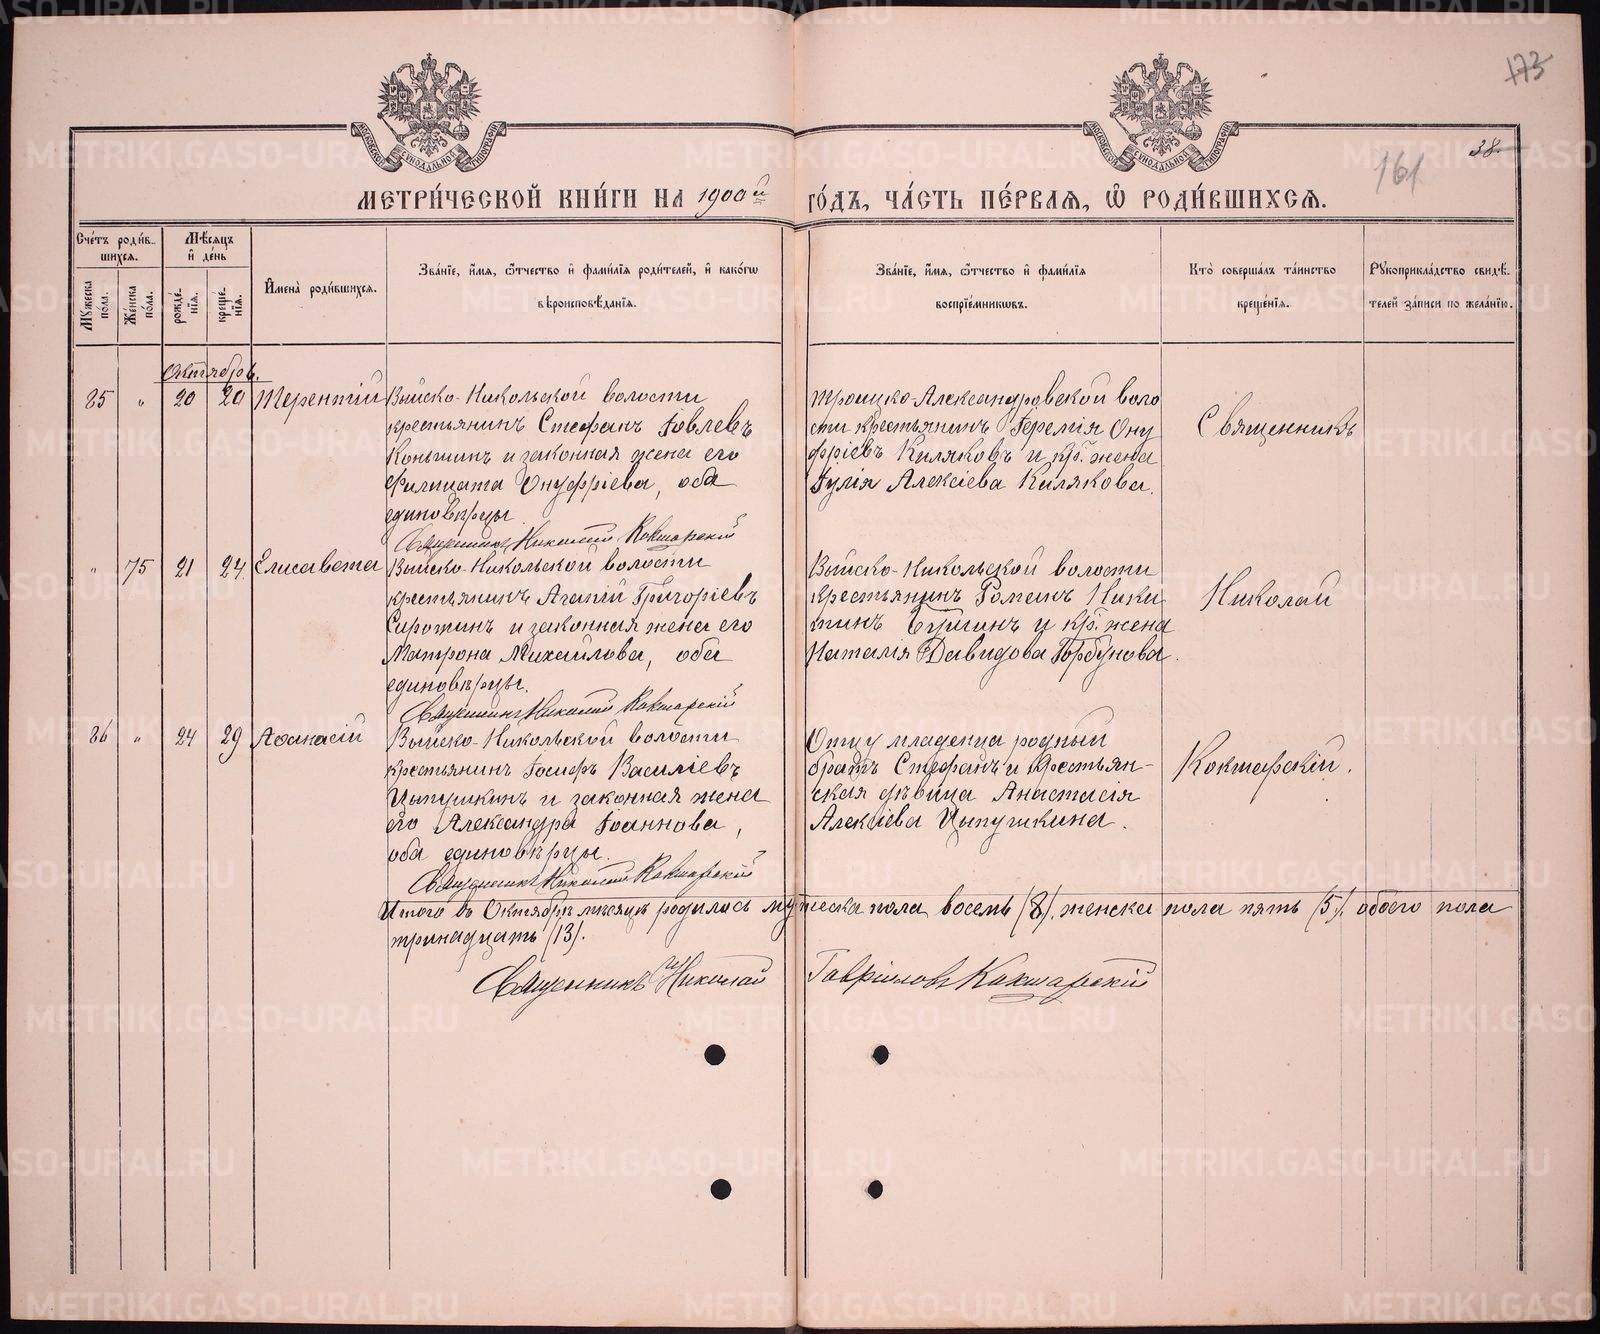 173
38.
161
МЕТРИ́ЧЕСКОЙ КНИ́ГИ НА 1900й ГО́ДЪ, ЧА́СТЬ ПЕ́РВАЯ, Ѡ РОДИ́ВШИХСЯ.
Сче́тъ роди́в-
шихся.
Мѣ́сяцъ
и҆ де́нь
Мꙋ́жеска
по́ла.
Же́нска
по́ла.
рожде́-
нїя.
креще́-
нїя.
И҆мена̀ роди́вшихся.
Зва́нїе, и҆́мя, ѻ҆́тчество и҆ фами́лїя роди́телей, и҆ како́гѡ
вѣроисповѣ́данїя.
Зва́нїе, и҆́мя, ѻ҆́тчество и҆ фами́лїя
воспрїе́мниковъ.
Кто̀ соверша́лъ та́инство
креще́нїя.
Рꙋкоприкла́дство свидѣ́-
телей за́писи по жела́нїю.
Октябрь.
85 " 20 20 Терентій
Выйско-Никольской волости
крестьянинъ Стефанъ Іовлевъ
Коньшинъ и законная жена его
Филицата Онуфріева, оба
единовѣрцы.
Священникъ Николай Кокшарскій
Троицко-Александровской воло
сти крестьянинъ Іеремія Ону
фріевъ Киляковъ и кр. жена
Іулія Алексіева Килякова.
Священникъ
" 75 21 24 Елисавета
Выйско-Никольской волости
крестьянинъ Агапій Григоріевъ
Сиротинъ и законная жена его
Матрона Михайлова, оба
единовѣрцы.
Священникъ Николай Кокшарскій
Выйско-Никольской волости
крестьянинъ Романъ Ники
тинъ и кр. жена
Наталія Давидова Горбунова.
Николай
86 " 24 29 Аѳанасій
Выйско-Никольской волости
крестьянинъ Іосифъ Василіевъ
Цыпушкинъ и законная жена
его Александра Іоаннова,
оба единовѣрцы.
Священникъ Николай Кокшарскій
Отцу младенца родный
братъ Стефанъ и крестьян-
ская дѣвица Анастасія
Алексіева Цыпушкина.
Кокшарскій.
Итого въ Октябрѣ мѣсяцѣ родилось мужеска пола восемь (8), женска пола пять (5), обоего пола
тринадцать (13).
Священникъ Николай Гавріиловъ Кокшарскій
METRIKI.GASO-URAL.RU